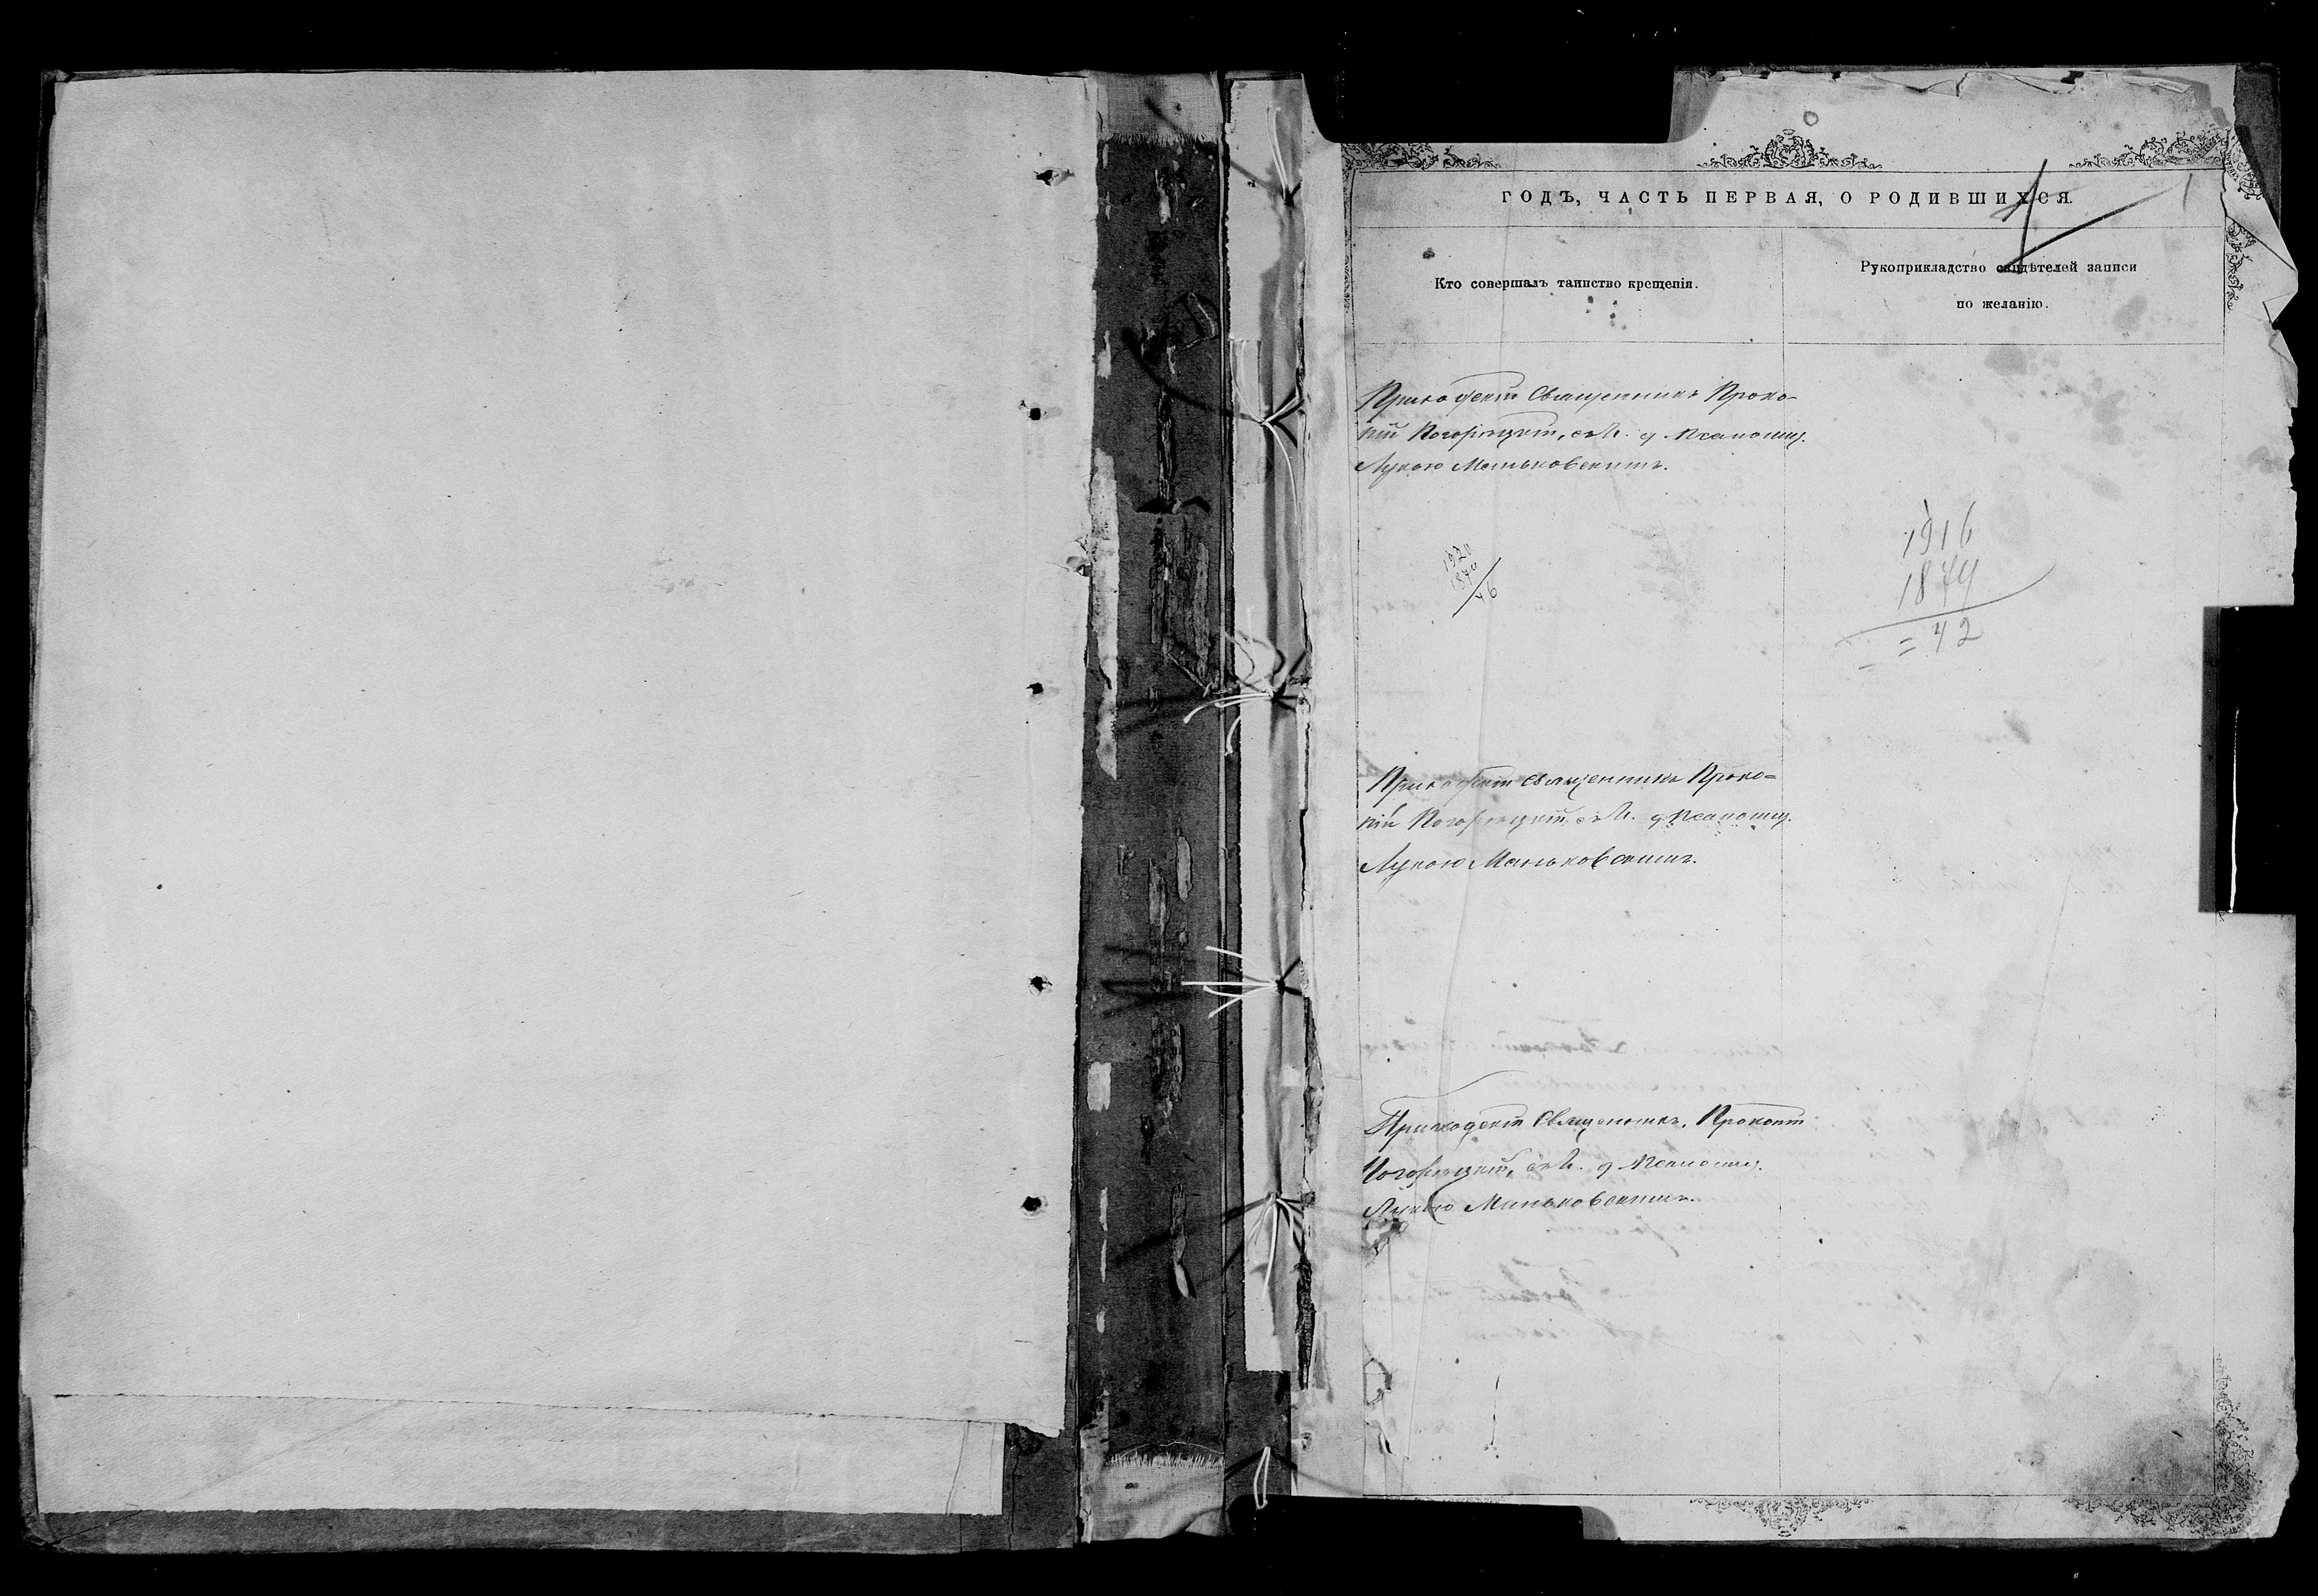 1
ГОДЪ, ЧАСТЬ ПЕРВАЯ, О РОДИВШИХСЯ.
Кто совершалъ таинство крещенія.
Рукоприкладство свидѣтелей записи
по желанію.
Приходскій Священникъ Проко-
пій Погорѣцкій, съ И. д. Псаломщ.
Лукою Маньковскимъ.
1920
1874
46
1916
1874
= 42
Приходскій священникъ Проко=
пій Погорѣцкій съ И. д. Псаломщ.
Лукою Маньковскимъ.
Приходскій Священникъ, Прокопій
Погорѣцкій, съ И. д. Псаломщ.
Лукою Маньковскимъ.